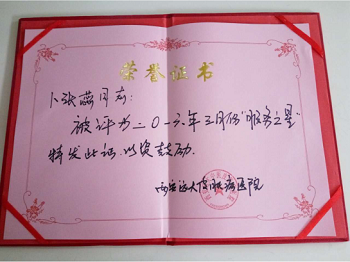 荣誉证书
卜张蕊同志:
被评为二〇一六年三月份“服务之星”
特发此证,以资鼓励.
西安远大俊郎医院